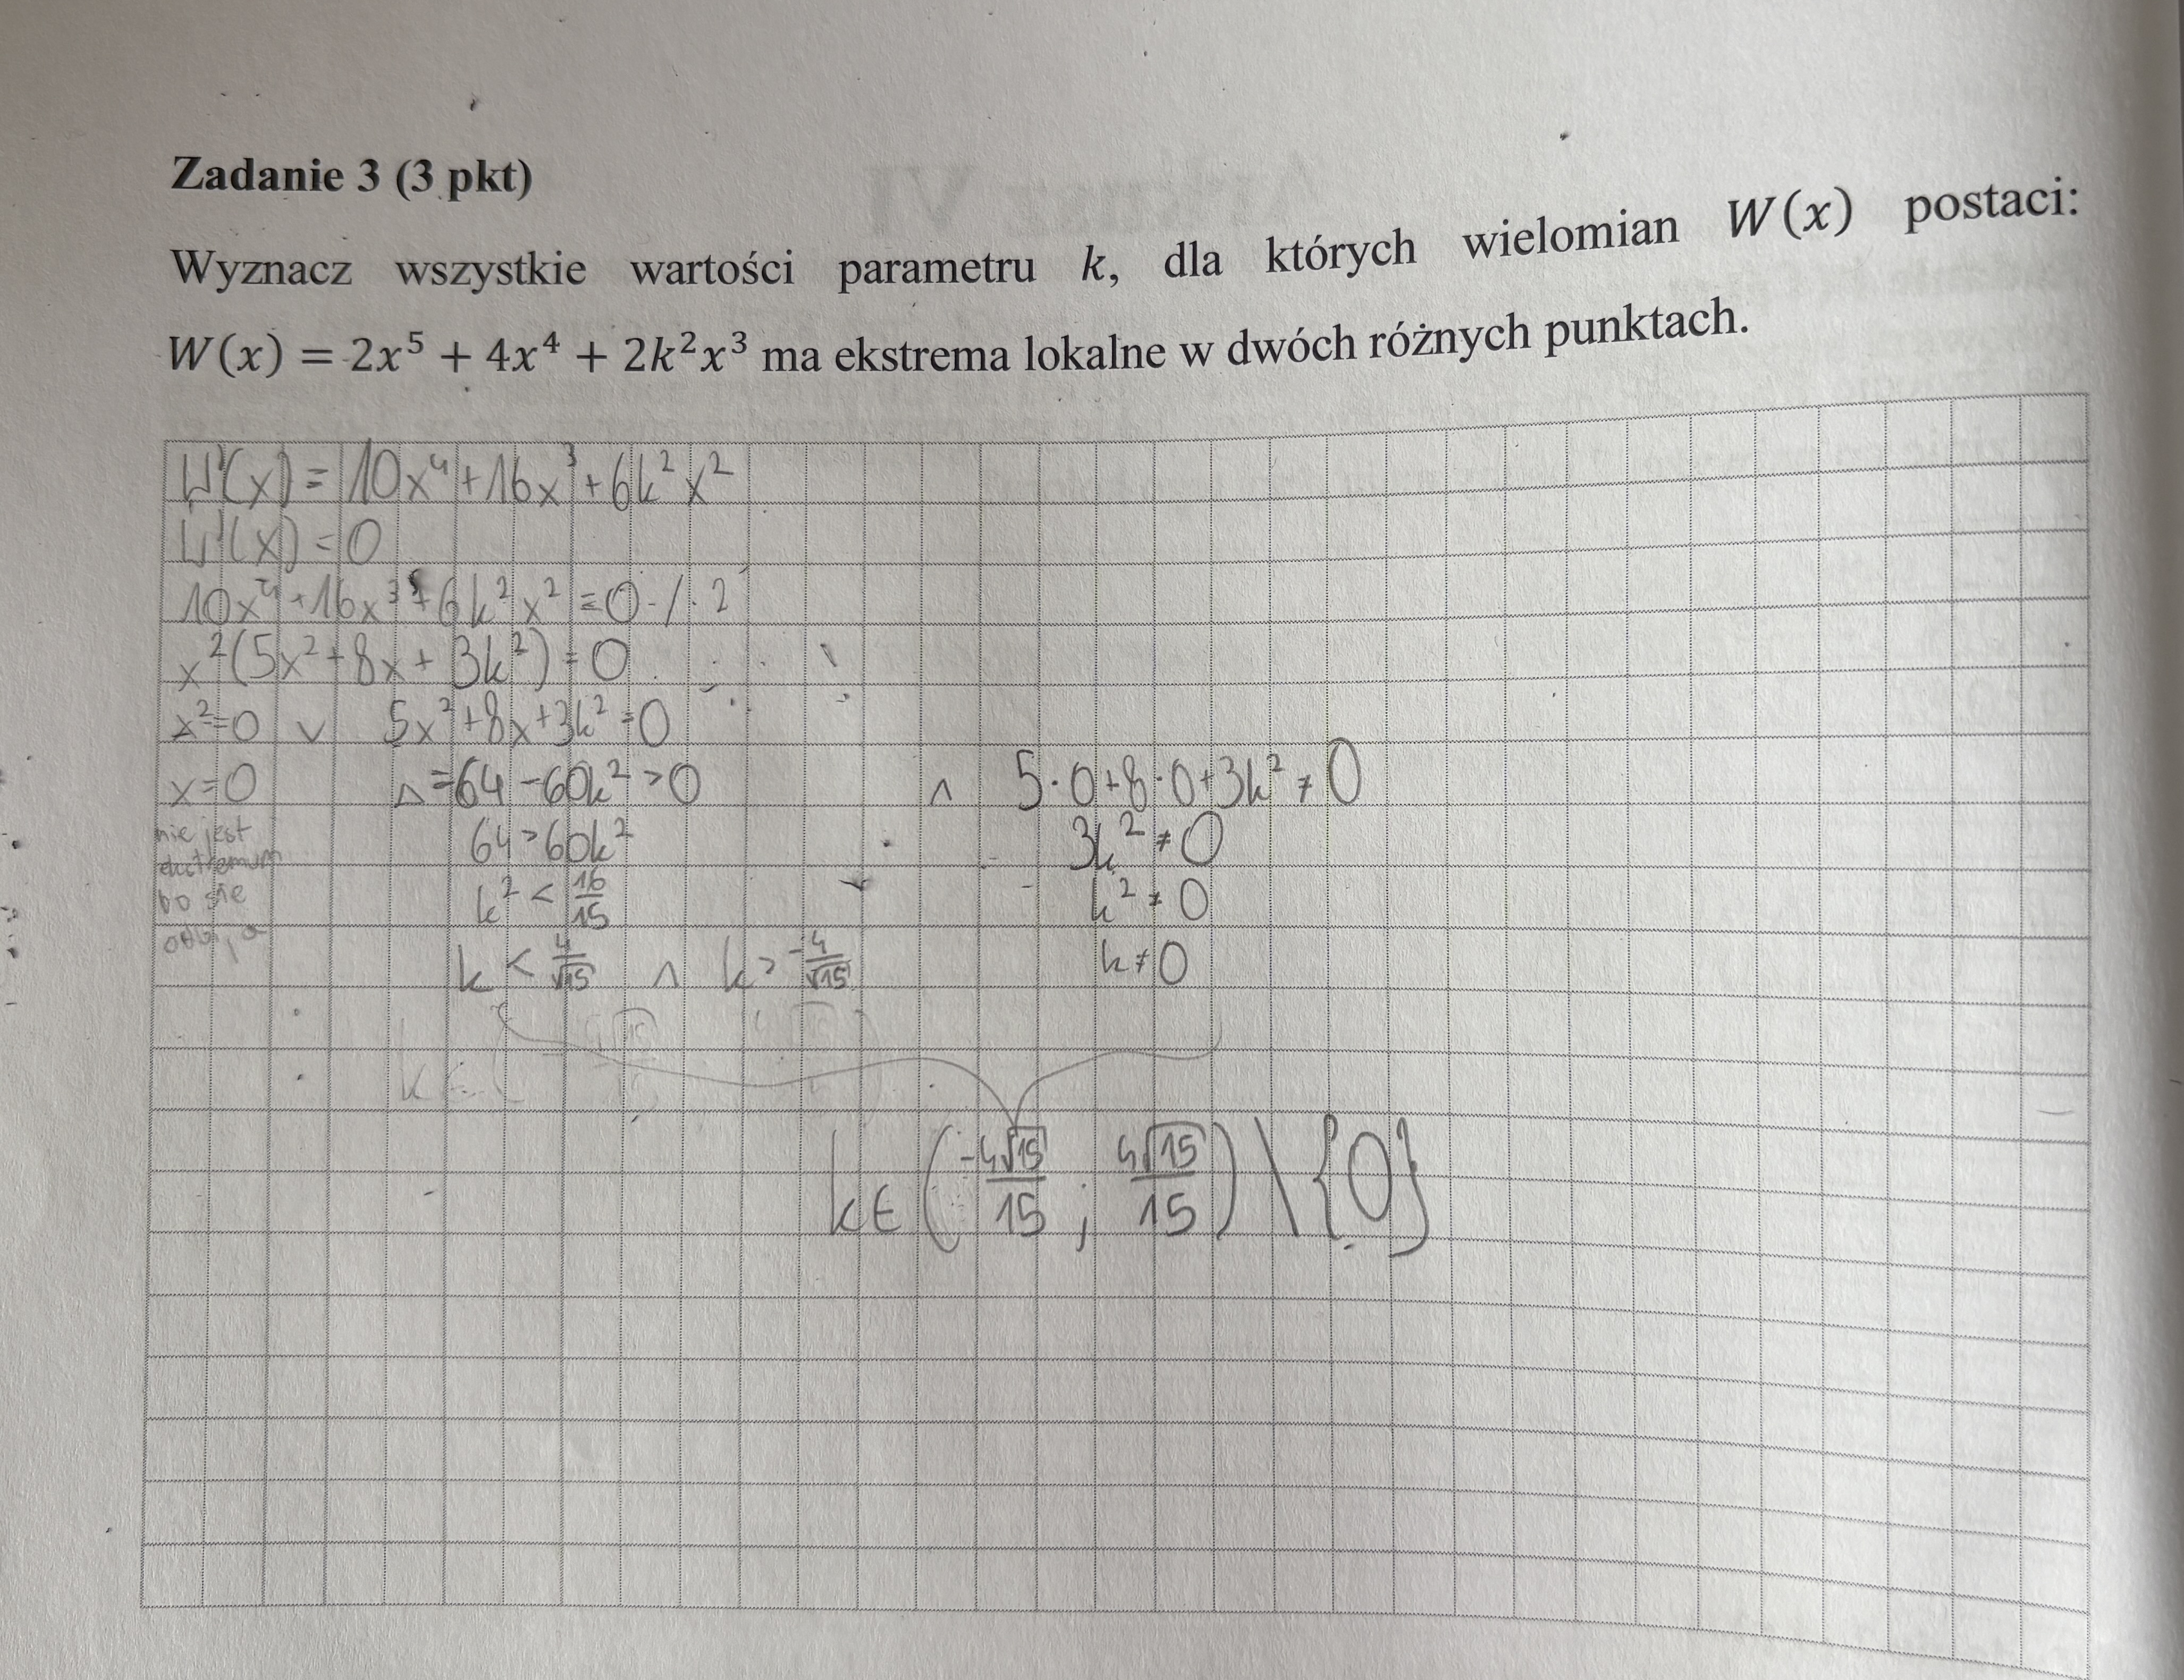 Zadanie 3 (3 pkt)
Wyznacz wszystkie wartości parametru k, dla których wielomian W(x) postaci:
W(x) = 2x⁵ + 4x⁴ + 2k²x³ ma ekstrema lokalne w dwóch różnych punktach.
W'(x) = 10x⁴ + 16x³ + 6k²x²
W'(x) = 0
10x⁴ + 16x³ + 6k²x² = 0 / : 2
x²(5x² + 8x + 3k²) = 0
x² = 0 ∨ 5x² + 8x + 3k² = 0
x = 0 Δ = 64 - 60k² > 0 ∧ 5·0 + 8·0 + 3k² ≠ 0
nie jest 64 > 60k² 3k² ≠ 0
ekstremum
bo się k² < 16/15 k² ≠ 0
odbija k < 4/√15 ∧ k > -4/√15 k ≠ 0
k ∈ (-4√15/15 ; 4√15/15) \ {0}